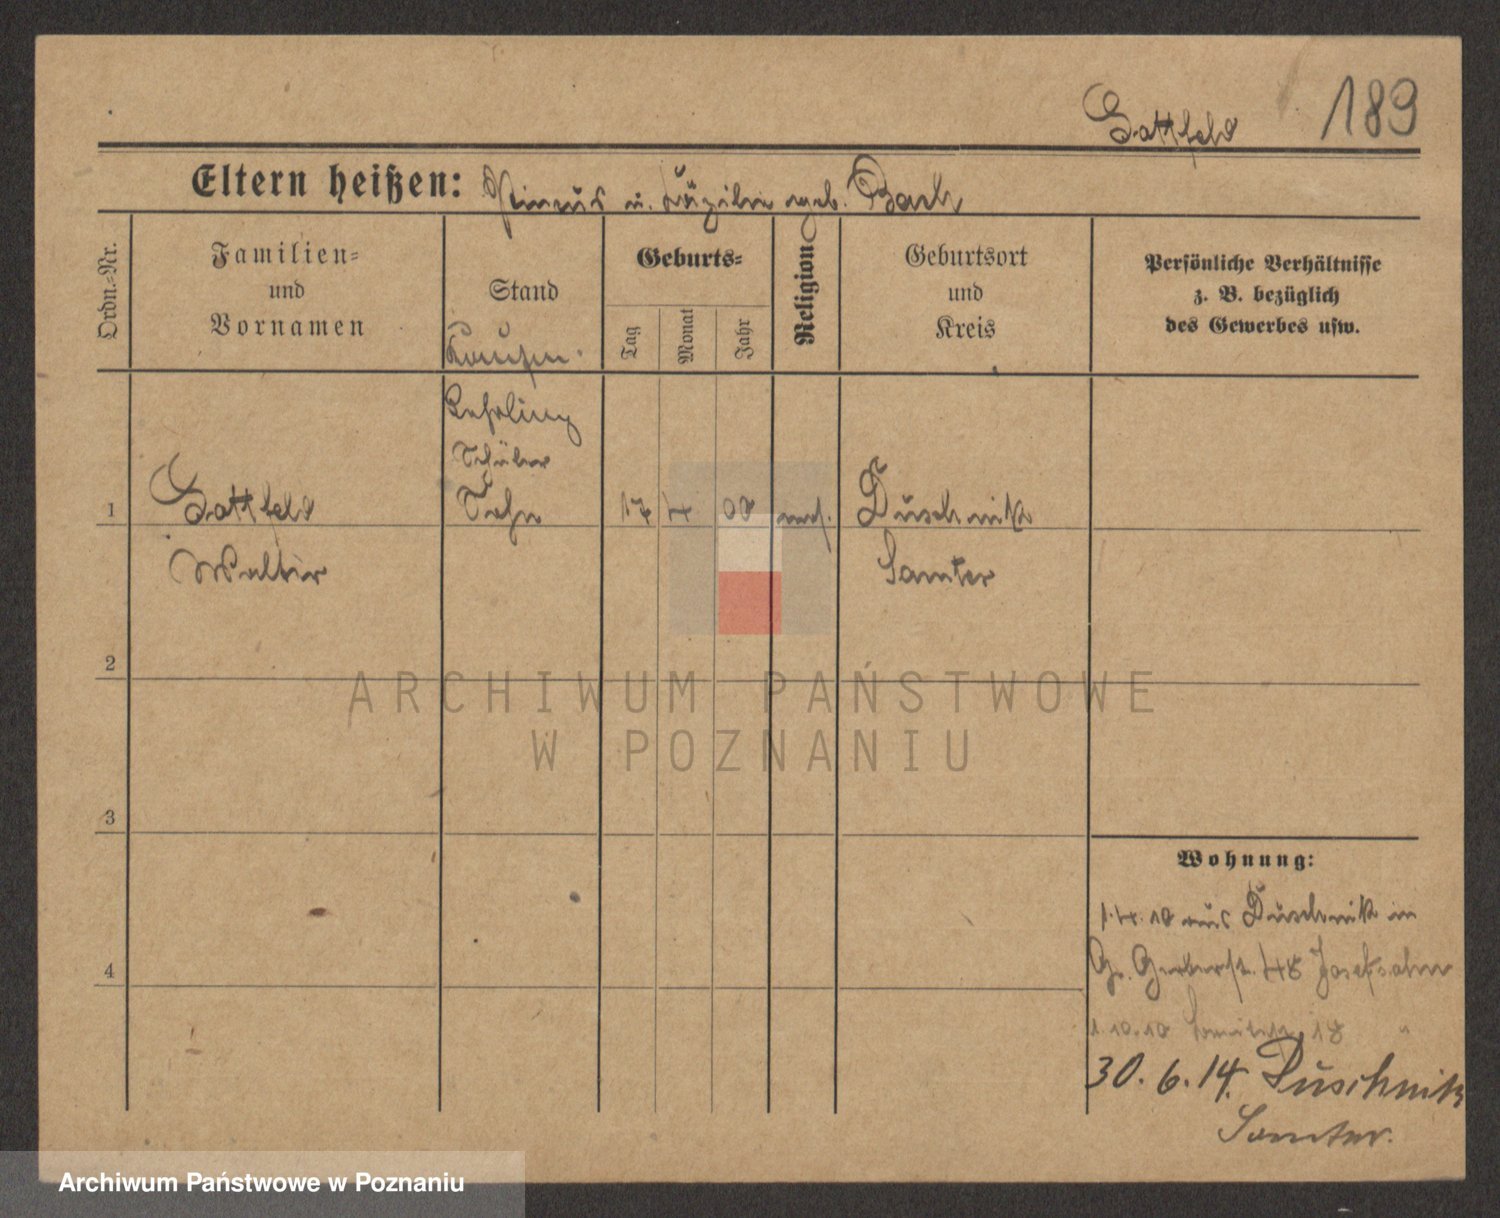 Gottfeld 189
Eltern heißen: Pinkus u. Cäzilie geb. Bach
Ordn.-Nr.
Familien-
und
Vornamen
Stand
Kaufm.
Geburts-
Tag
Monat
Jahr
Religion
Geburtsort
und
Kreis
Persönliche Verhältnisse
z. B. bezüglich
des Gewerbes usw.
Lehrling
Schüler
1 Gottfeld Sohn 17 4 00 mos. Duschnik
Walter Samter
2
3
4
Wohnung:
1.4.10 aus Duschnik in
Gr. Gerberstr. 48 Josefsohn
1.10.10 18 "
30.6.14. Duschnik
Samter.
ARCHIWUM PAŃSTWOWE
W POZNANIU
Archiwum Państwowe w Poznaniu